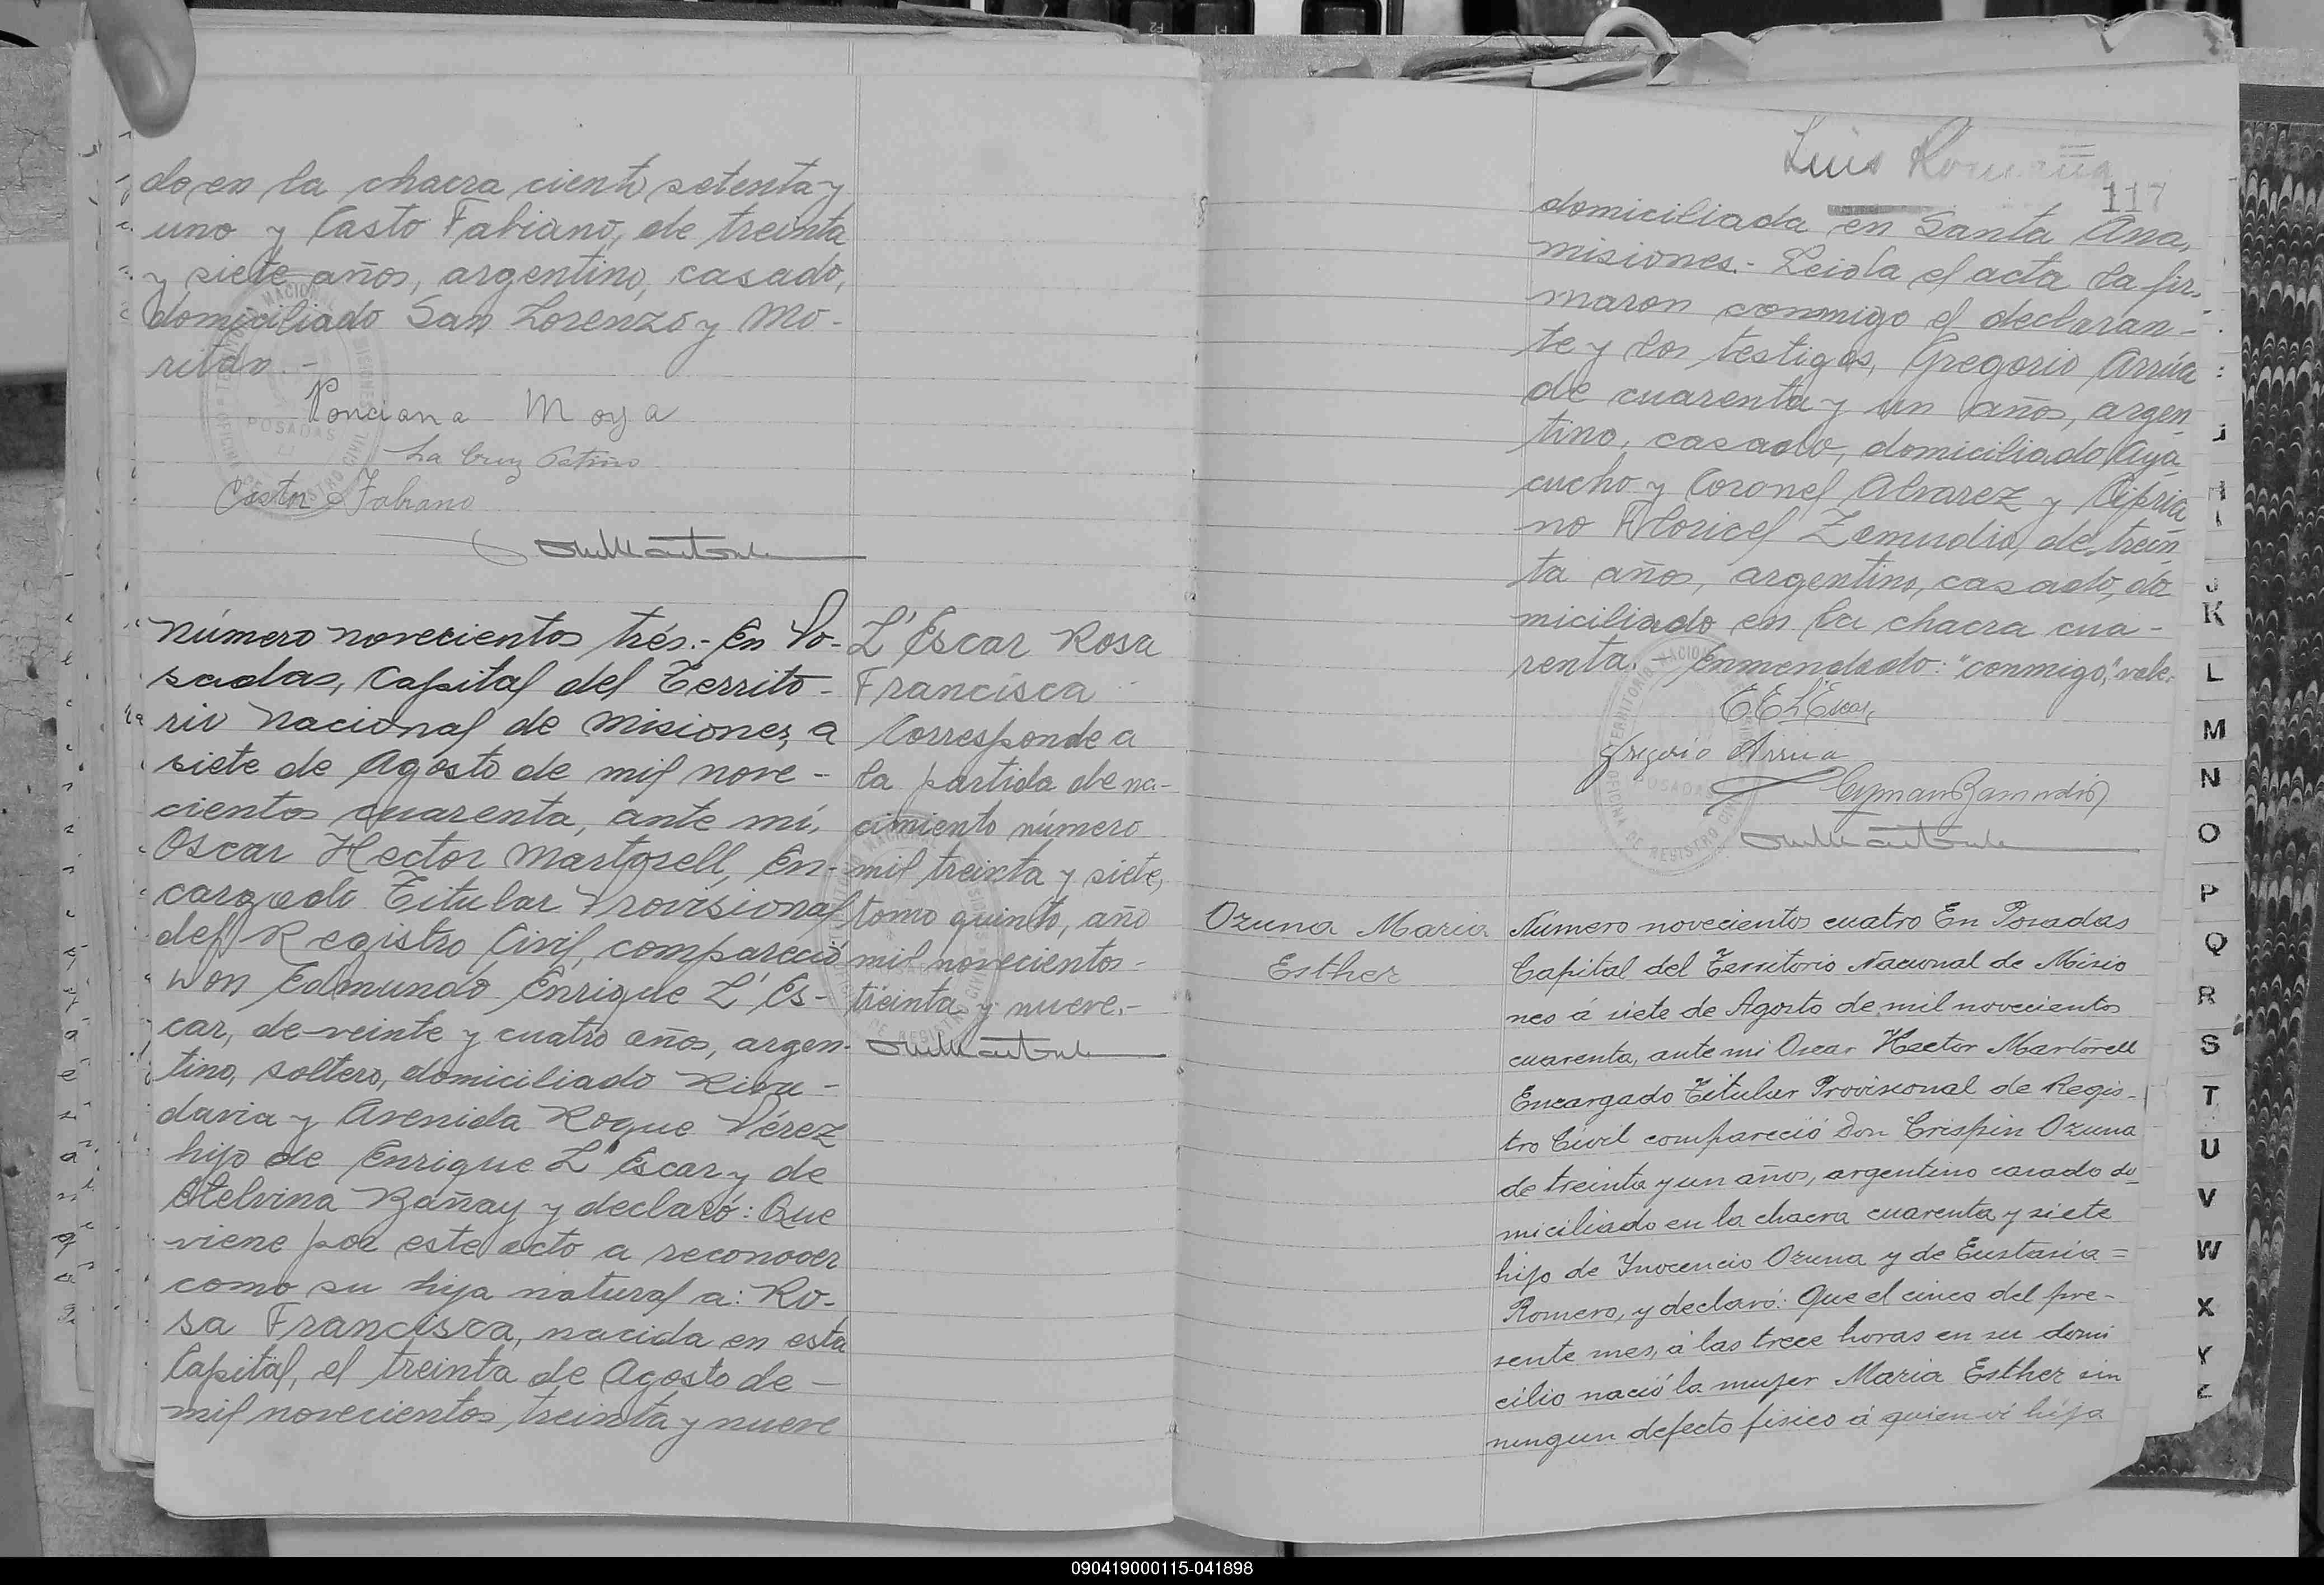 do en la chacra ciento setenta y
uno y Casto Fabiano, de treinta
y siete años, argentino, casado,
domiciliado San Lorenzo y Mo-
ritán.-
Ponciana Moya
La Cruz Patiño
Casto Fabiano
Número novecientos trés.- En Po-
sadas, Capital del Territo-
rio Nacional de Misiones, a
siete de Agosto de mil nove-
cientos cuarenta, ante mí,
Oscar Hector Martorell, En-
cargado Titular Provisional
del Registro Civil, compareció
Don Edmundo Enrique L'Es-
car, de veinte y cuatro años, argen-
tino, soltero, domiciliado Riva-
davia y Avenida Roque Pérez
hijo de Enrique L'Escar y de
Etelvina Bañay y declaró: Que
viene por este acto a reconocer
como su hija natural a: Ro-
sa Francisca, nacida en esta
Capital, el treinta de Agosto de-
mil novecientos treinta y nueve
L'Escar Rosa
Francisca
Corresponde a
la partida de na-
cimiento número
mil treinta y siete,
tomo quinto, año
mil novecientos-
treinta y nueve.-
Luis
117
domiciliada en Santa Ana,
misiones.- Leida el acta la fir-
maron conmigo el declaran-
te y los testigos, Gregorio Arrúa
de cuarenta y un años, argen
tino, casado, domiciliado Aya
cucho y Coronel Alvarez y Cipria
no Floricel Zamudio, de trein
ta años, argentino, casado, do
miciliado en la chacra cua-
renta.- Enmendado: "conmigo," vale.-
E.E.L'Escar
Gregorio Arrua
Cyprian Zamudio
Ozuna Maria
Esther
Número novecientos cuatro En Posadas
Capital del Territorio Nacional de Misio
nes á siete de Agosto de mil novecientos
cuarenta, ante mi Oscar Hector Martorell
Encargado Titular Provisional de Regis-
tro Civil compareció Don Crispin Ozuna
de treinta y un años, argentino casado do-
miciliado en la chacra cuarenta y siete
hijo de Inocencio Ozuna y de Eustasia=
Romero, y declaró: Que el cinco del pre-
sente mes, á las trece horas en su domi
cilio nació la mujer Maria Esther sin
ningun defecto fisico á quien vi hija
J
K
L
M
N
O
P
Q
R
S
T
U
V
W
X
Y
Z
090419000115-041898